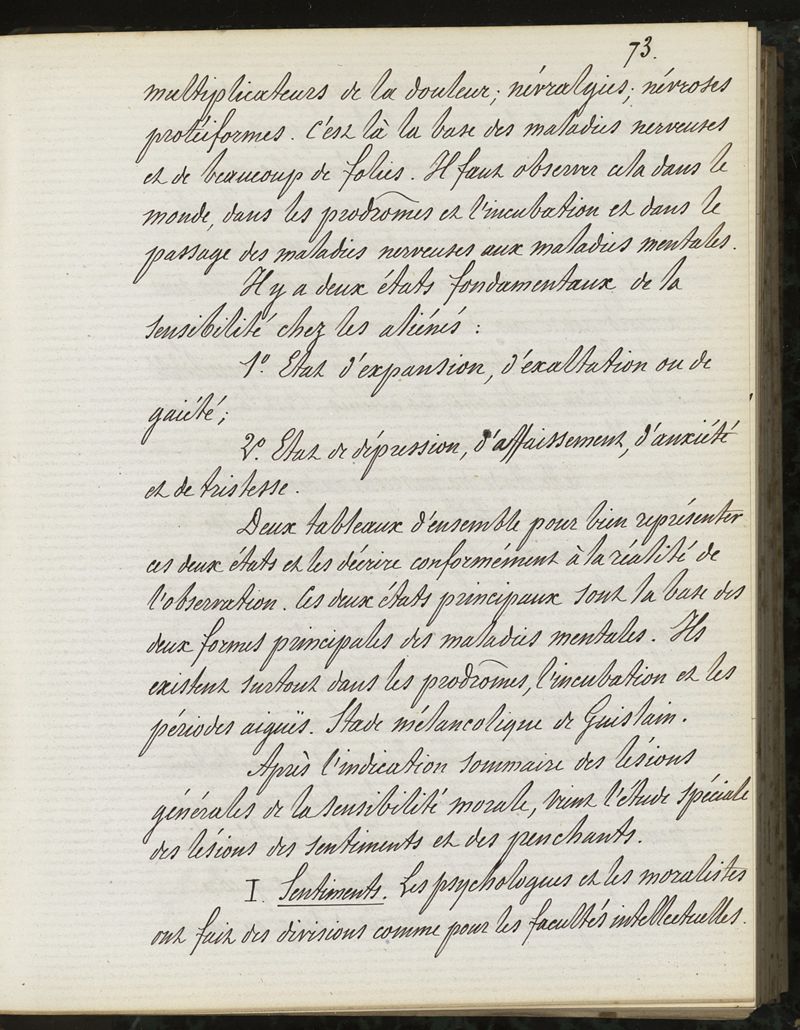 73.
multiplicateurs de la douleur; névralgies; névroses
protéiformes. C'est là la base des maladies nerveuses
et de beaucoup de folies. Il faut observer cela dans le
monde, dans les prodrômes et l'incubation et dans le
passage des maladies nerveuses aux maladies mentales.
Il y a deux états fondamentaux de la
sensibilité chez les aliénés :
1.º Etat d'expansion, d'exaltation ou de
gaiété;
2.º Etat de dépression, d'affaissement, d'anxiété
et de tristesse.
Deux tableaux d'ensemble pour bien représenter
ces deux états et les décrire conformément à la réalité de
l'observation. Ces deux états principaux sont la base des
deux formes principales des maladies mentales. Ils
existent surtout dans les prodrômes, l'incubation et les
périodes aiguës. Stade mélancolique de Guislain.
Après l'indication sommaire des lésions
générales de la sensibilité morale, vient l'étude spéciale
des lésions des sentiments et des penchants.
I. Sentiments. Les psychologues et les moralistes
ont fait des divisions comme pour les facultés intellectuelles.